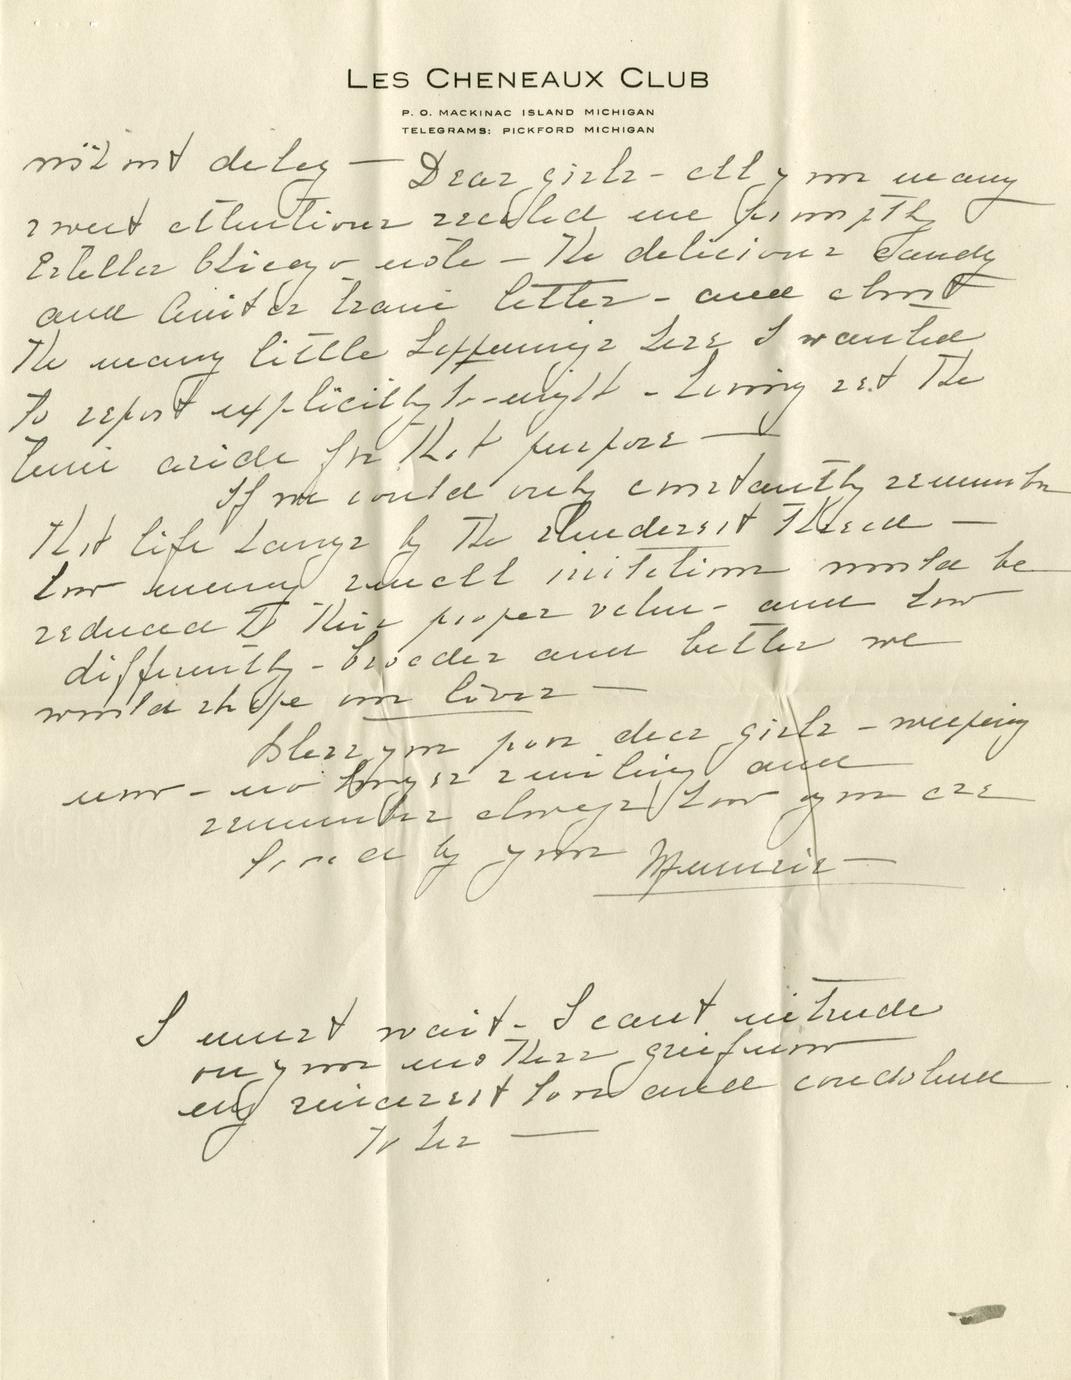 LES CHENEAUX CLUB
P. O. MACKINAC ISLAND MICHIGAN
TELEGRAMS: PICKFORD MICHIGAN
without delay — Dear girls - all your many
sweet attentions reached me promptly
Estelles Chicago note - The delicious Candy
and train letter - and about
the many little happenings here I wanted
to report explicitly to-night - having set the
time aside for that purpose —
If we could only constantly remember
that life hangs by the slenderest thread —
how many small irritations would be
reduced to their proper value - and how
differently - broader and better we
would shape our lives —
Bless you poor dear girls - weeping
now - no longer smiling and
remember always how you are
loved by your Mumsie —
I must wait - I cant intrude
on your mothers grief now
my sincerest love and condolence
to her —